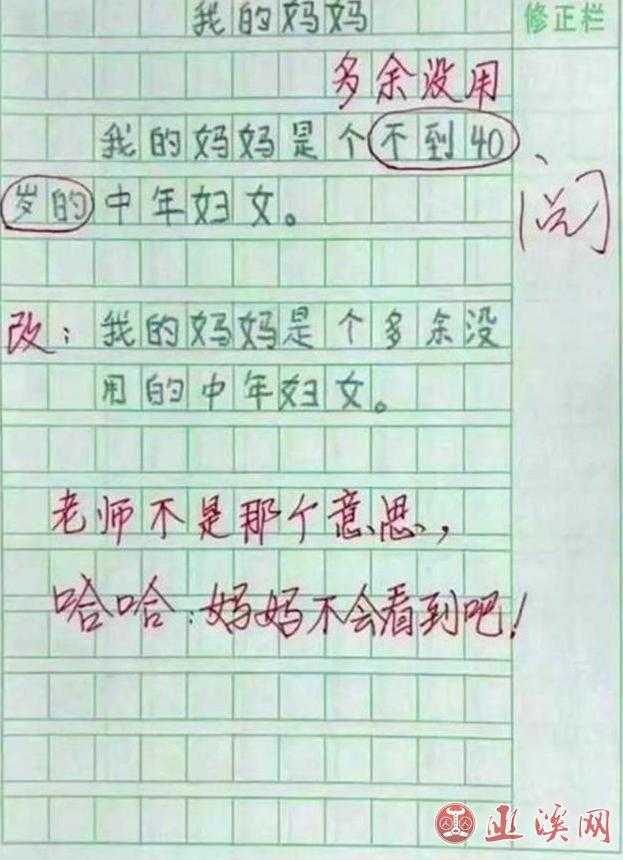 我的妈妈
修正栏
多余没用
我的妈妈是个不到40
岁的中年妇女。
阅
改：我的妈妈是个多余没
用的中年妇女。
老师不是那个意思，
哈哈：妈妈不会看到吧！
巫溪网